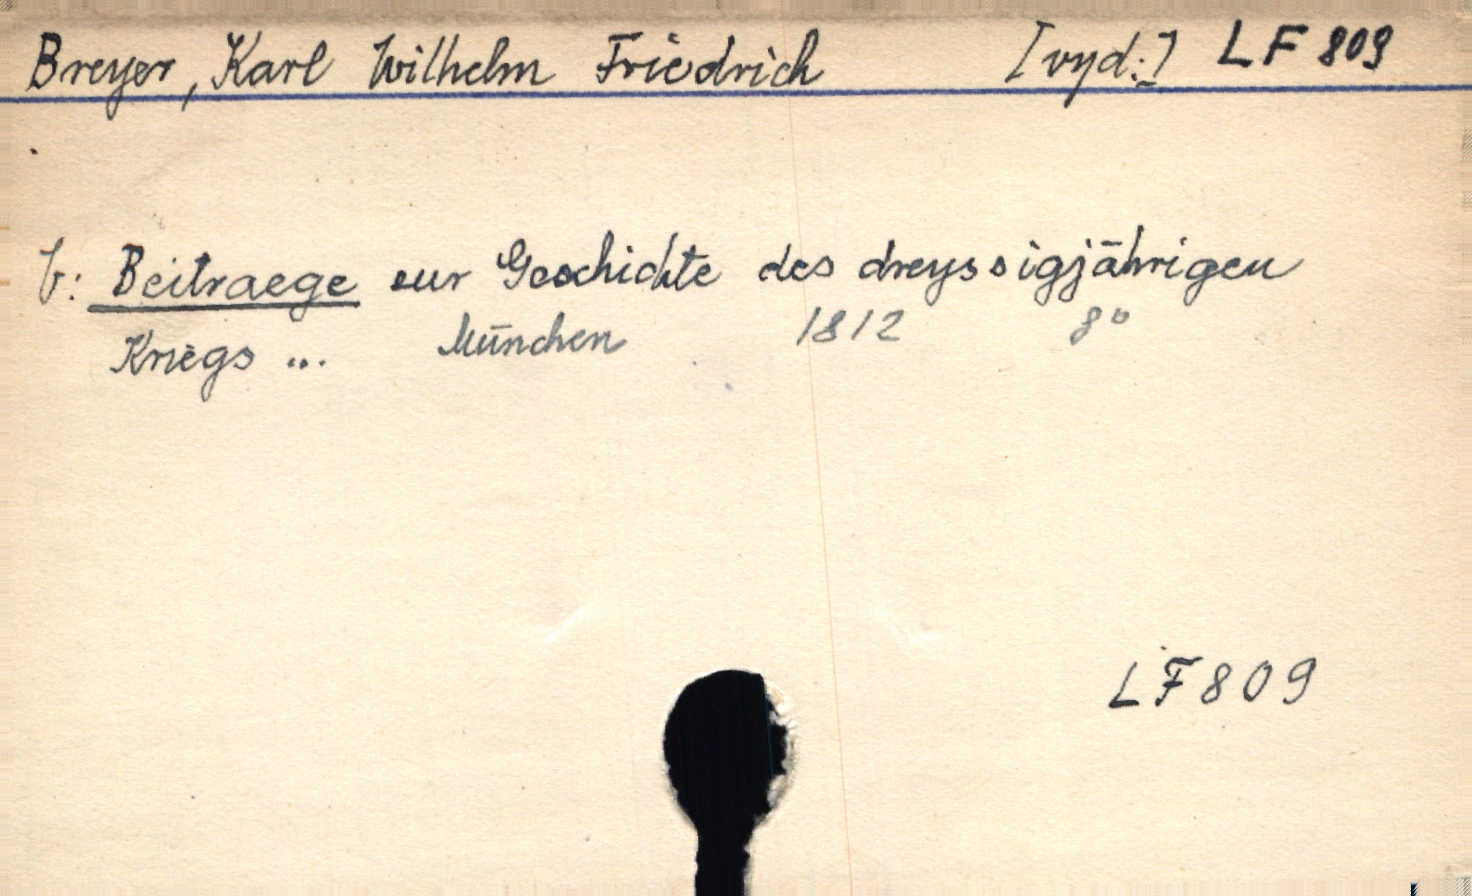 Breyer, Karl Wilhelm Friedrich [vyd.] LF 809
v: Beitraege zur Geschichte des dreyssigjährigen
Kriegs ... München 1812 8°
LF809